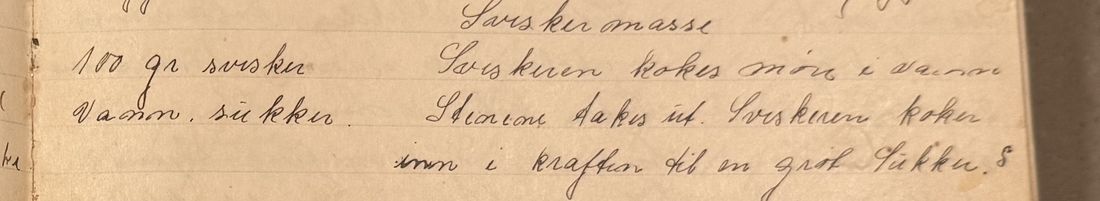 Sviskermasse
100 gr svisker
vann. sukker.
Sviskeren kokes møre i vann
Stenene takes ut. Sviskeren koker
inn i kraften til en grøt Sukker. S